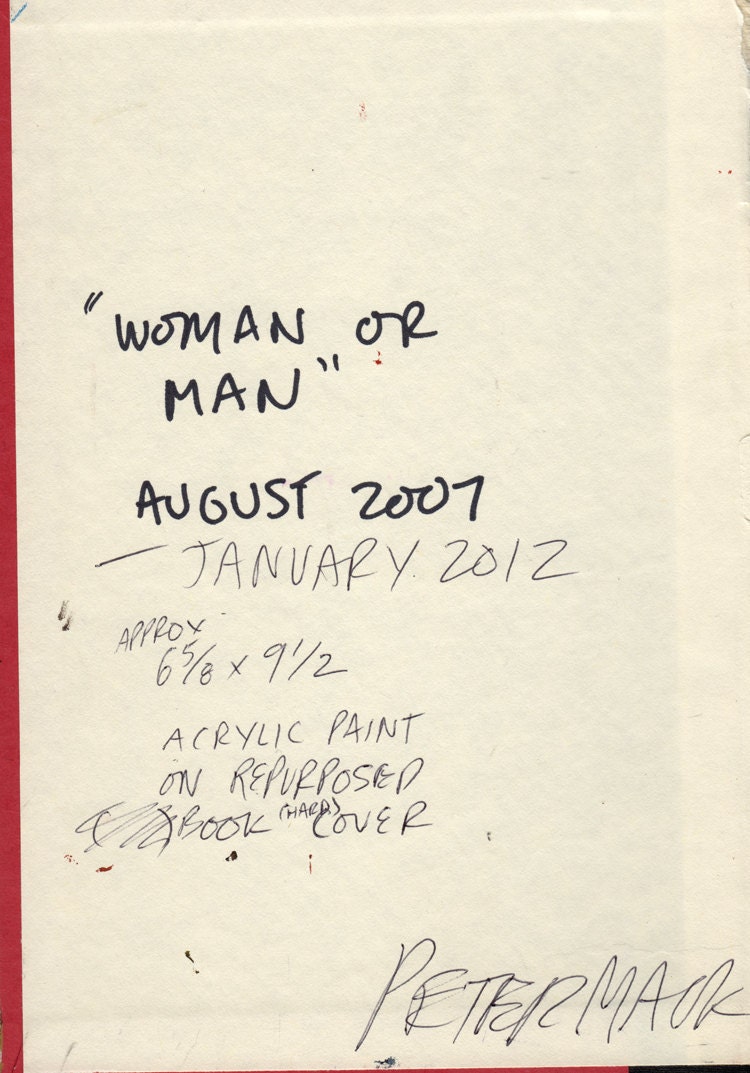 "WOMAN OR
MAN"
AUGUST 2007
— JANUARY 2012
APPROX
6 5/8 x 9 1/2
ACRYLIC PAINT
ON REPURPOSED
BOOK (HARD) COVER
PETER MACK